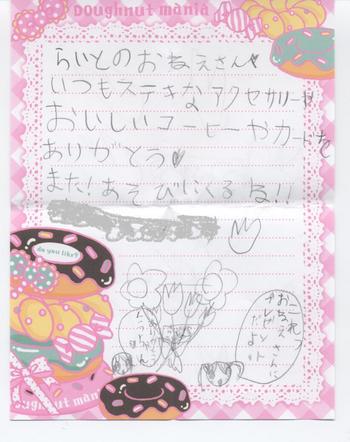 Doughnut mania
らいとのおねえさん♥
いつもステキなアクセサリーや
おいしいコーヒーやカードを
ありがとう♥
また!あそびにくるね!!
do you like?
これっ
おねえさんに
プレゼント
Doughnut mania